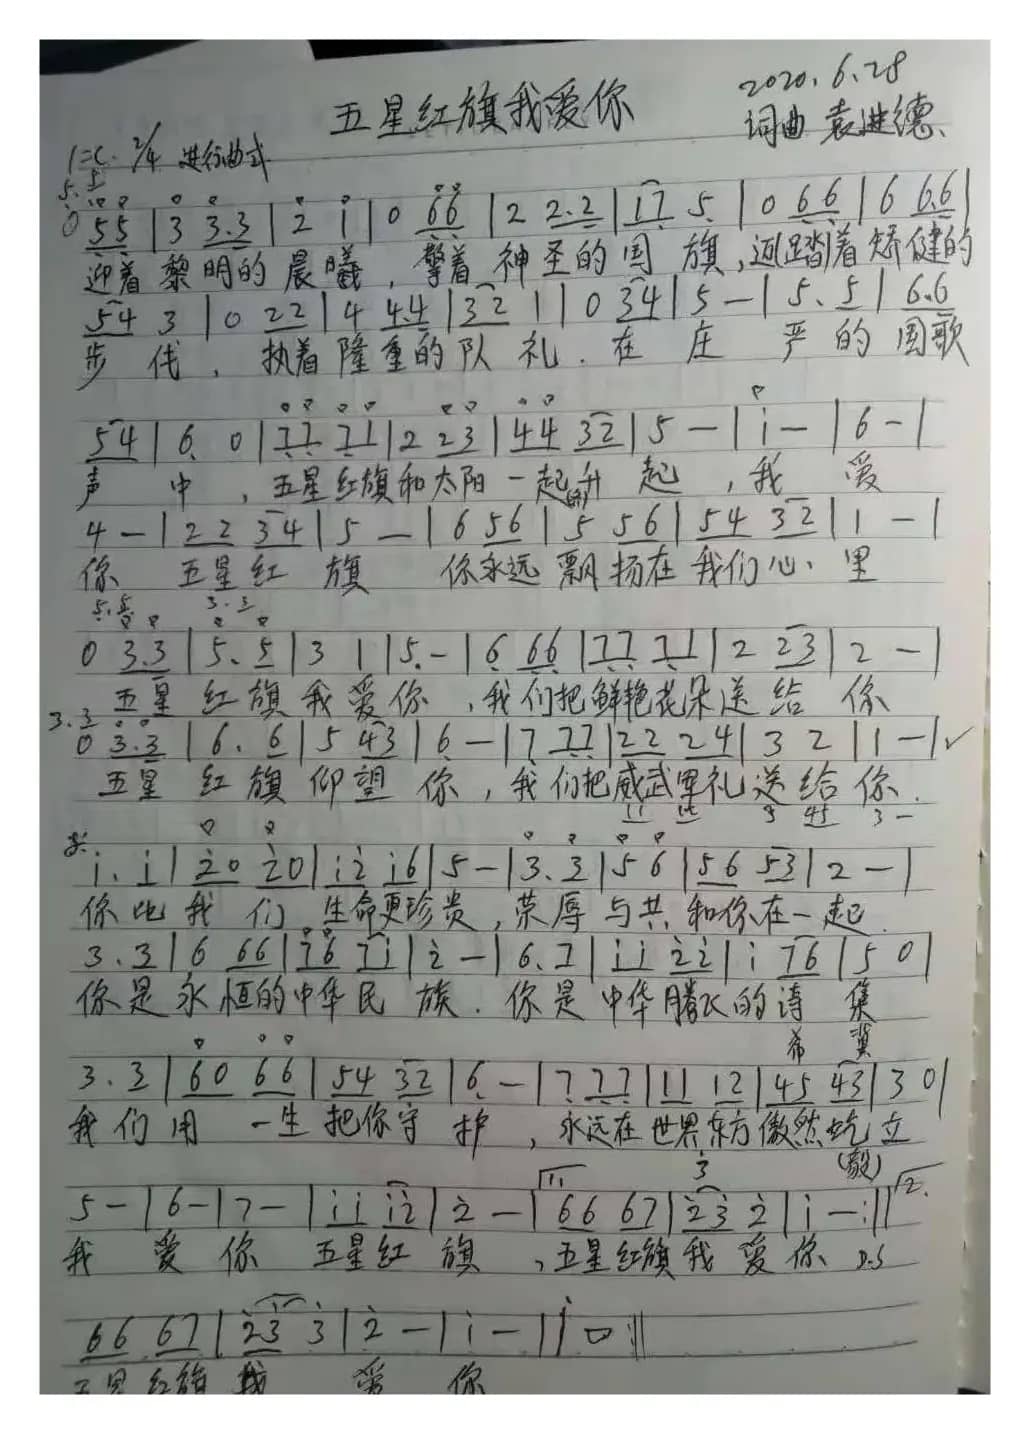 五星红旗我爱你
2020.6.28
词曲 袁进德
1=C 2/4 进行曲式
5. 5
0 55 | 3 3.3 | 2 1 | 0 66 | 2 2.2 | 17 5 | 0 66 | 6 6.6 |
迎着黎明的晨曦, 擎着神圣的国旗, 迈踏着矫健的
54 3 | 0 22 | 4 4.4 | 32 1 | 0 34 | 5 — | 5. 5 | 6.6
步伐, 执着隆重的队礼. 在庄严的国歌
54 | 6 0 | 77 71 | 2 23 | 44 32 | 5 — | i — | 6 — |
声中, 五星红旗和太阳一起升起, 我爱
4 — | 22 34 | 5 — | 6 56 | 5 56 | 54 32 | 1 — |
你 五星红旗 你永远飘扬在我们心里
5. 5 3. 3
0 3.3 | 5. 5 | 3 1 | 5 — | 6 66 | 77 71 | 2 23 | 2 — |
五星红旗我爱你, 我们把鲜艳花朵送给你
3. 3
0 3.3 | 6. 6 | 5 43 | 6 — | 7 77 | 22 24 | 3 2 | 1 — | ✓
五星红旗仰望你, 我们把威武军礼送给你.
11 12 3 45 3 —
i. i | 20 20 | i2 i6 | 5 — | 3. 3 | 5 6 | 56 53 | 2 — |
你比我们生命更珍贵, 荣辱与共和你在一起.
3. 3 | 6 66 | 76 71 | 2 — | 6. 7 | ii 22 | i 76 | 5 0 |
你是永恒的中华民族. 你是中华腾飞的诗集
希冀
3. 3 | 60 66 | 54 32 | 6 — | 7 77 | 11 12 | 45 43 | 3 0 |
我们用一生把你守护, 永远在世界东方傲然屹立
(毅)
3
5 — | 6 — | 7 — | ii i2 | 2 — | 1. 66 67 | 23 2 | i — :|| 2.
我爱你 五星红旗, 五星红旗我爱你 D.S
66 67 | 23 3 | 2 — | i — | i 0 ||
五星红旗我爱你